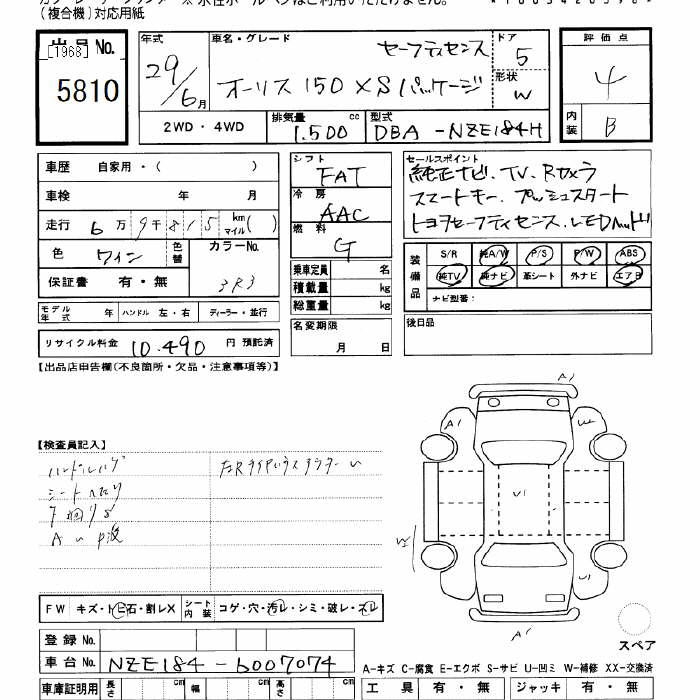 (複合機)対応用紙
出品No.
[1968]
5810
年式
29/6月
車名・グレード
セーフティセンス
オーリス 150 XSパッケージ
ドア
5
形状
W
2WD・4WD
排気量
1.500 cc
型式
DBA-NZE184H
評価点
4
内装
B
車歴 自家用・( )
車検 年 月
走行 6万9千815 km マイル( )
色 ワイン 色替
カラーNo.
3R3
保証書 有・無
モデル年式 年 ハンドル 左・右 ディーラー・並行
リサイクル料金 10.490 円 預託済
シフト
FAT
冷房
AAC
燃料
G
乗車定員 名
積載量 kg
総重量 kg
名変期限
月 日
セールスポイント
純正ナビ、TV、Rカメラ
スマートキー、プッシュスタート
トヨタセーフティセンス、LEDヘッド
装備品
S/R 純A/W P/S P/W ABS
純TV 純ナビ 革シート 外ナビ エアB
ナビ型番:
後日品
【出品店申告欄(不良箇所・欠品・注意事項等)】
【検査員記入】
A1
A1
W
U1
U1
A1
FW キズ・ト ビ石・割レX シート内装 コゲ・穴・汚レ・シミ・破レ・スレ
登録 No.
車台 No. NZE184-6007074
スペア
A-キズ C-腐食 E-エクボ S-サビ U-凹ミ W-補修 XX-交換済
車庫証明用 長さ cm 幅 cm 高さ cm
工具 有・無 ジャッキ 有・無